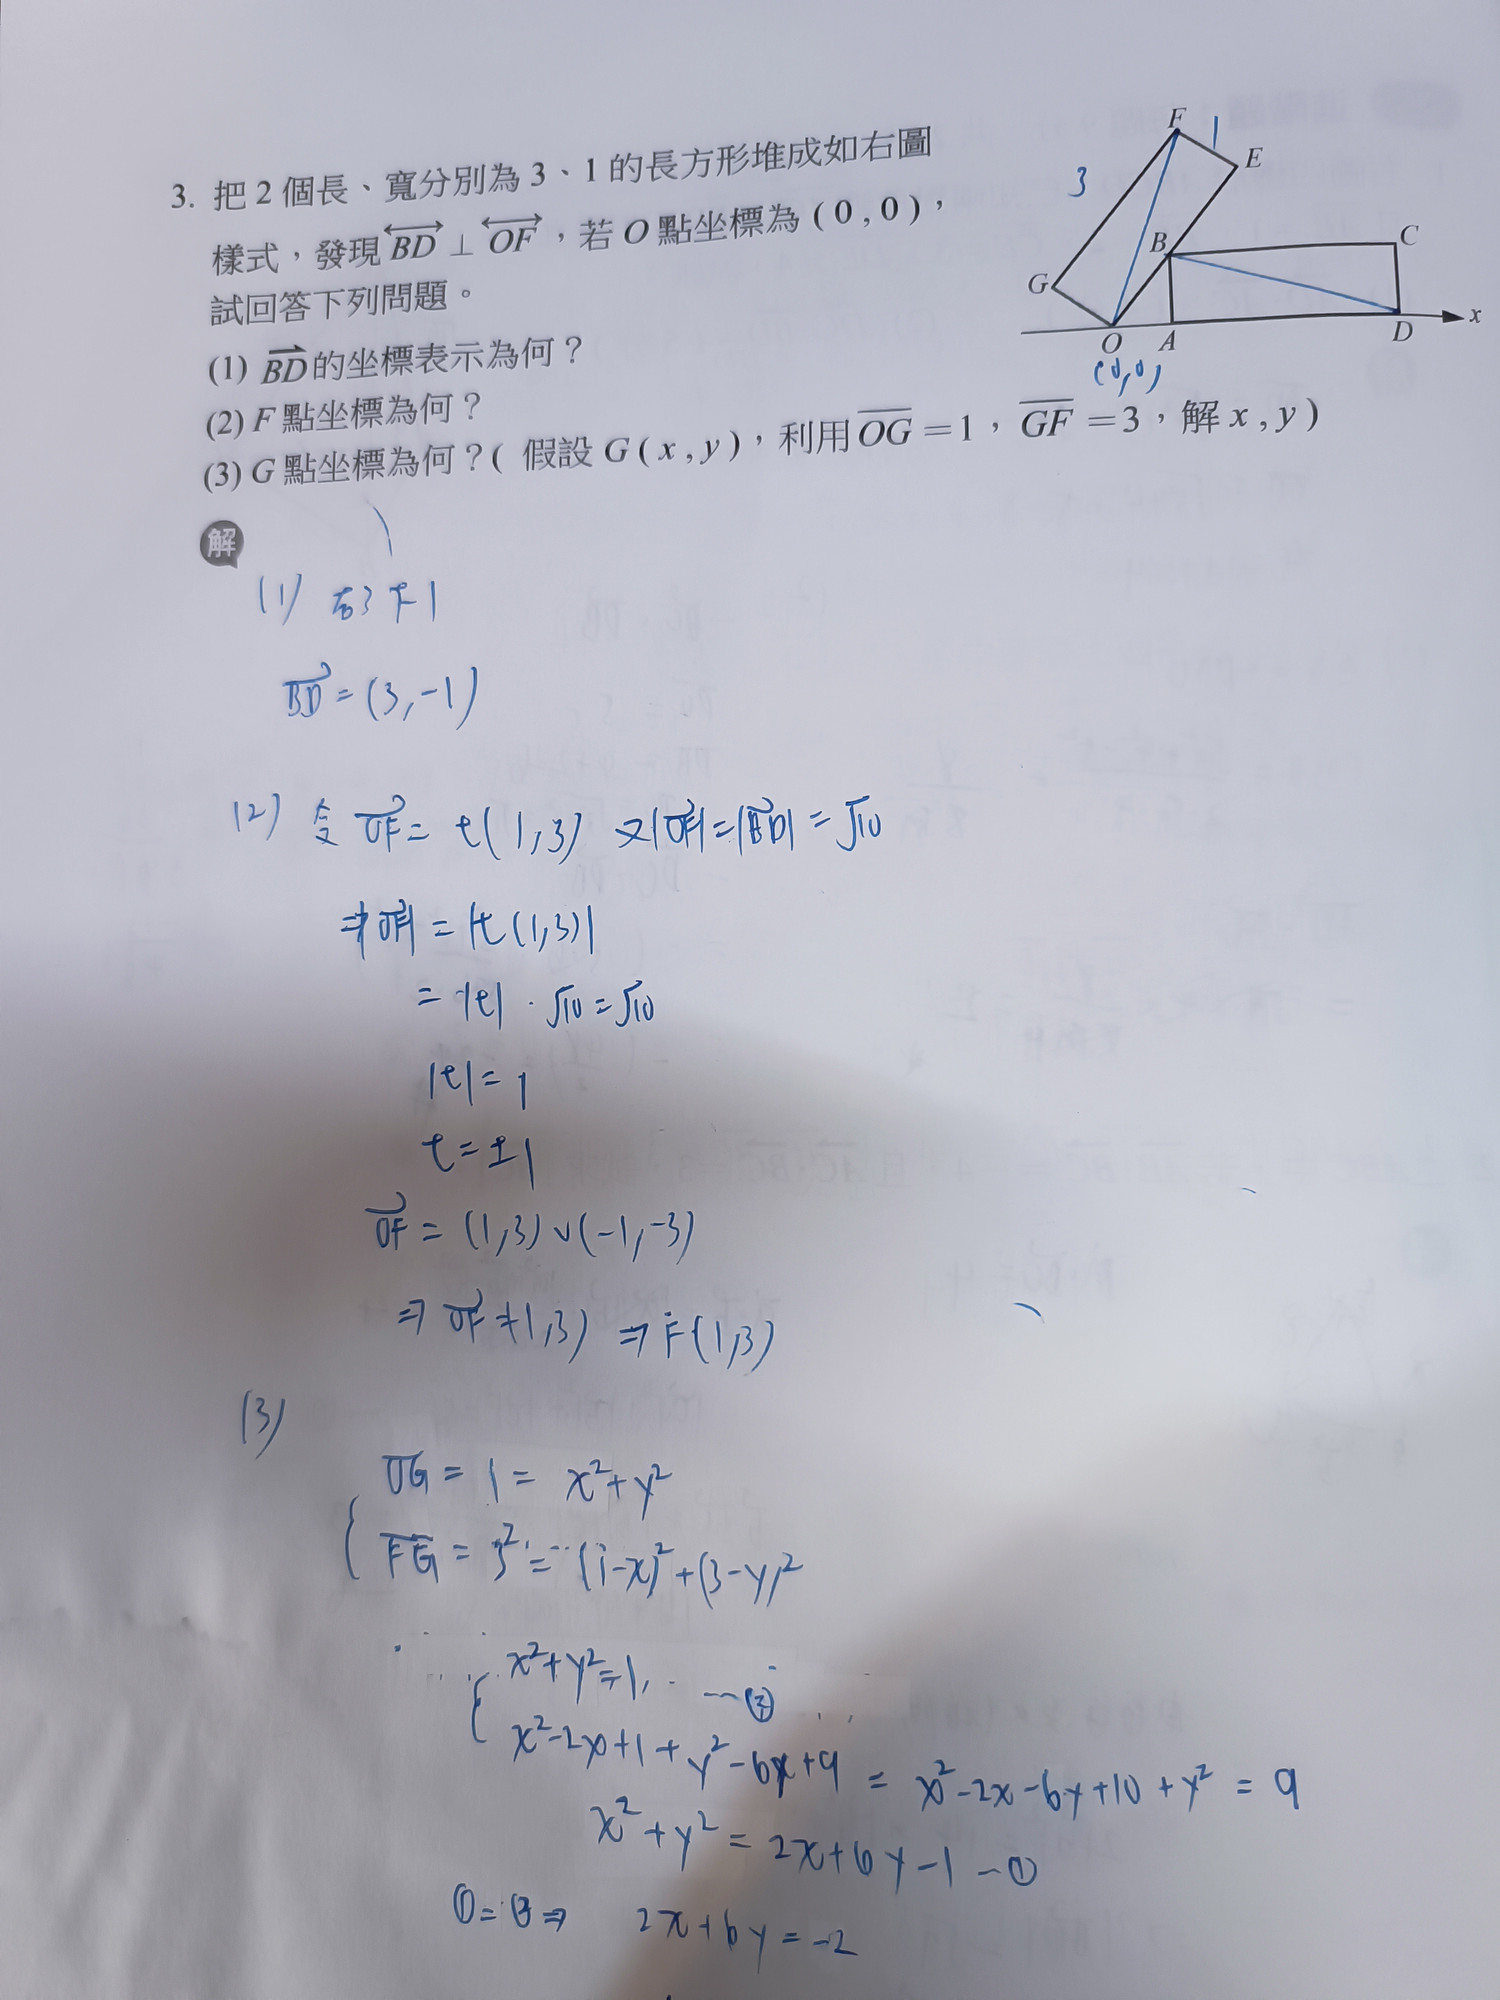 3. 把2個長、寬分別為3、1的長方形堆成如右圖
樣式，發現BD⊥OF，若O點坐標為(0,0)，
試回答下列問題。
(1) BD的坐標表示為何？
(2) F點坐標為何？
(3) G點坐標為何？( 假設G(x,y)，利用OG=1，GF=3，解x,y)
F
1
E
3
B
C
G
O
A
D
x
(0,0)
解
(1) 右3下1
BD=(3,-1)
(2) 令OF= t(1,3) 又|OF|=|BD|=√10
⇒|OF| = |t(1,3)|
= |t|·√10=√10
|t|=1
t=±1
OF= (1,3)∨(-1,-3)
⇒ OF=(1,3) ⇒F(1,3)
(3)
OG = 1 = x²+y²
FG = 3² = (1-x)²+(3-y)²
x²+y²=1 ---②
x²-2x+1+y²-6y+9 = x²-2x-6y+10+y² = 9
x²+y² = 2x+6y-1 -①
①=② ⇒ 2x+6y=-2